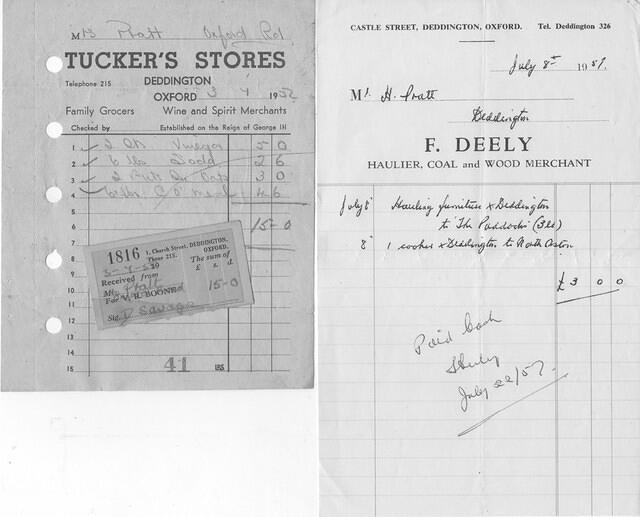 Mrs Pratt Oxford Rd
TUCKER'S STORES
Telephone 215 DEDDINGTON
OXFORD 3 4 1952
Family Grocers Wine and Spirit Merchants
Checked by Established on the Reign of George III
1 2 Vinegar 5 0
2 6 lbs 2 6
3 2 3 0
4 4 6
5
6 15-0
7
8
9
10
11
12
13
14
15 41
1816 1, Church Street, DEDDINGTON,
Phone 215. OXFORD.
Received from The sum of
£ s. d.
Mrs Pratt
For V. R. BOONE 15-0
Sig. D Savage
CASTLE STREET, DEDDINGTON, OXFORD. Tel. Deddington 326
July 8th 1957.
Mr. H. Pratt
Deddington
F. DEELY
HAULIER, COAL and WOOD MERCHANT
July 8 Hauling furniture x Deddington
to "The Paddocks"
8" 1 cooker x Deddington to North Aston
£ 3 0 0
Paid Cash
July 22/57.